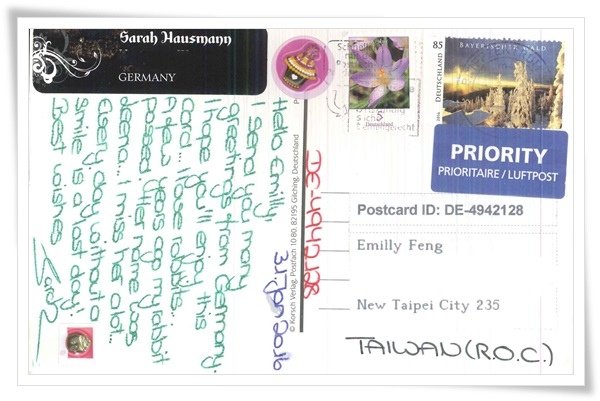 Sarah Hausmann
GERMANY
Hello Emilly,
I send you many
greetings from Germany.
I hope you'll enjoy this
card... I love rabbits...
A few years ago my rabbit
passed... Her name was
I miss her a lot...
Every day without a
smile is a lost day!
Best wishes
Sarah
31. Jan 2016
DE-4942128
© Korsch Verlag, Postfach 10 80, 82195 Gilching, Deutschland
5
Deutschland
85
BAYERISCHER WALD
DEUTSCHLAND
PRIORITY
PRIORITAIRE / LUFTPOST
Postcard ID: DE-4942128
Emilly Feng
New Taipei City 235
TAIWAN (R.O.C.)